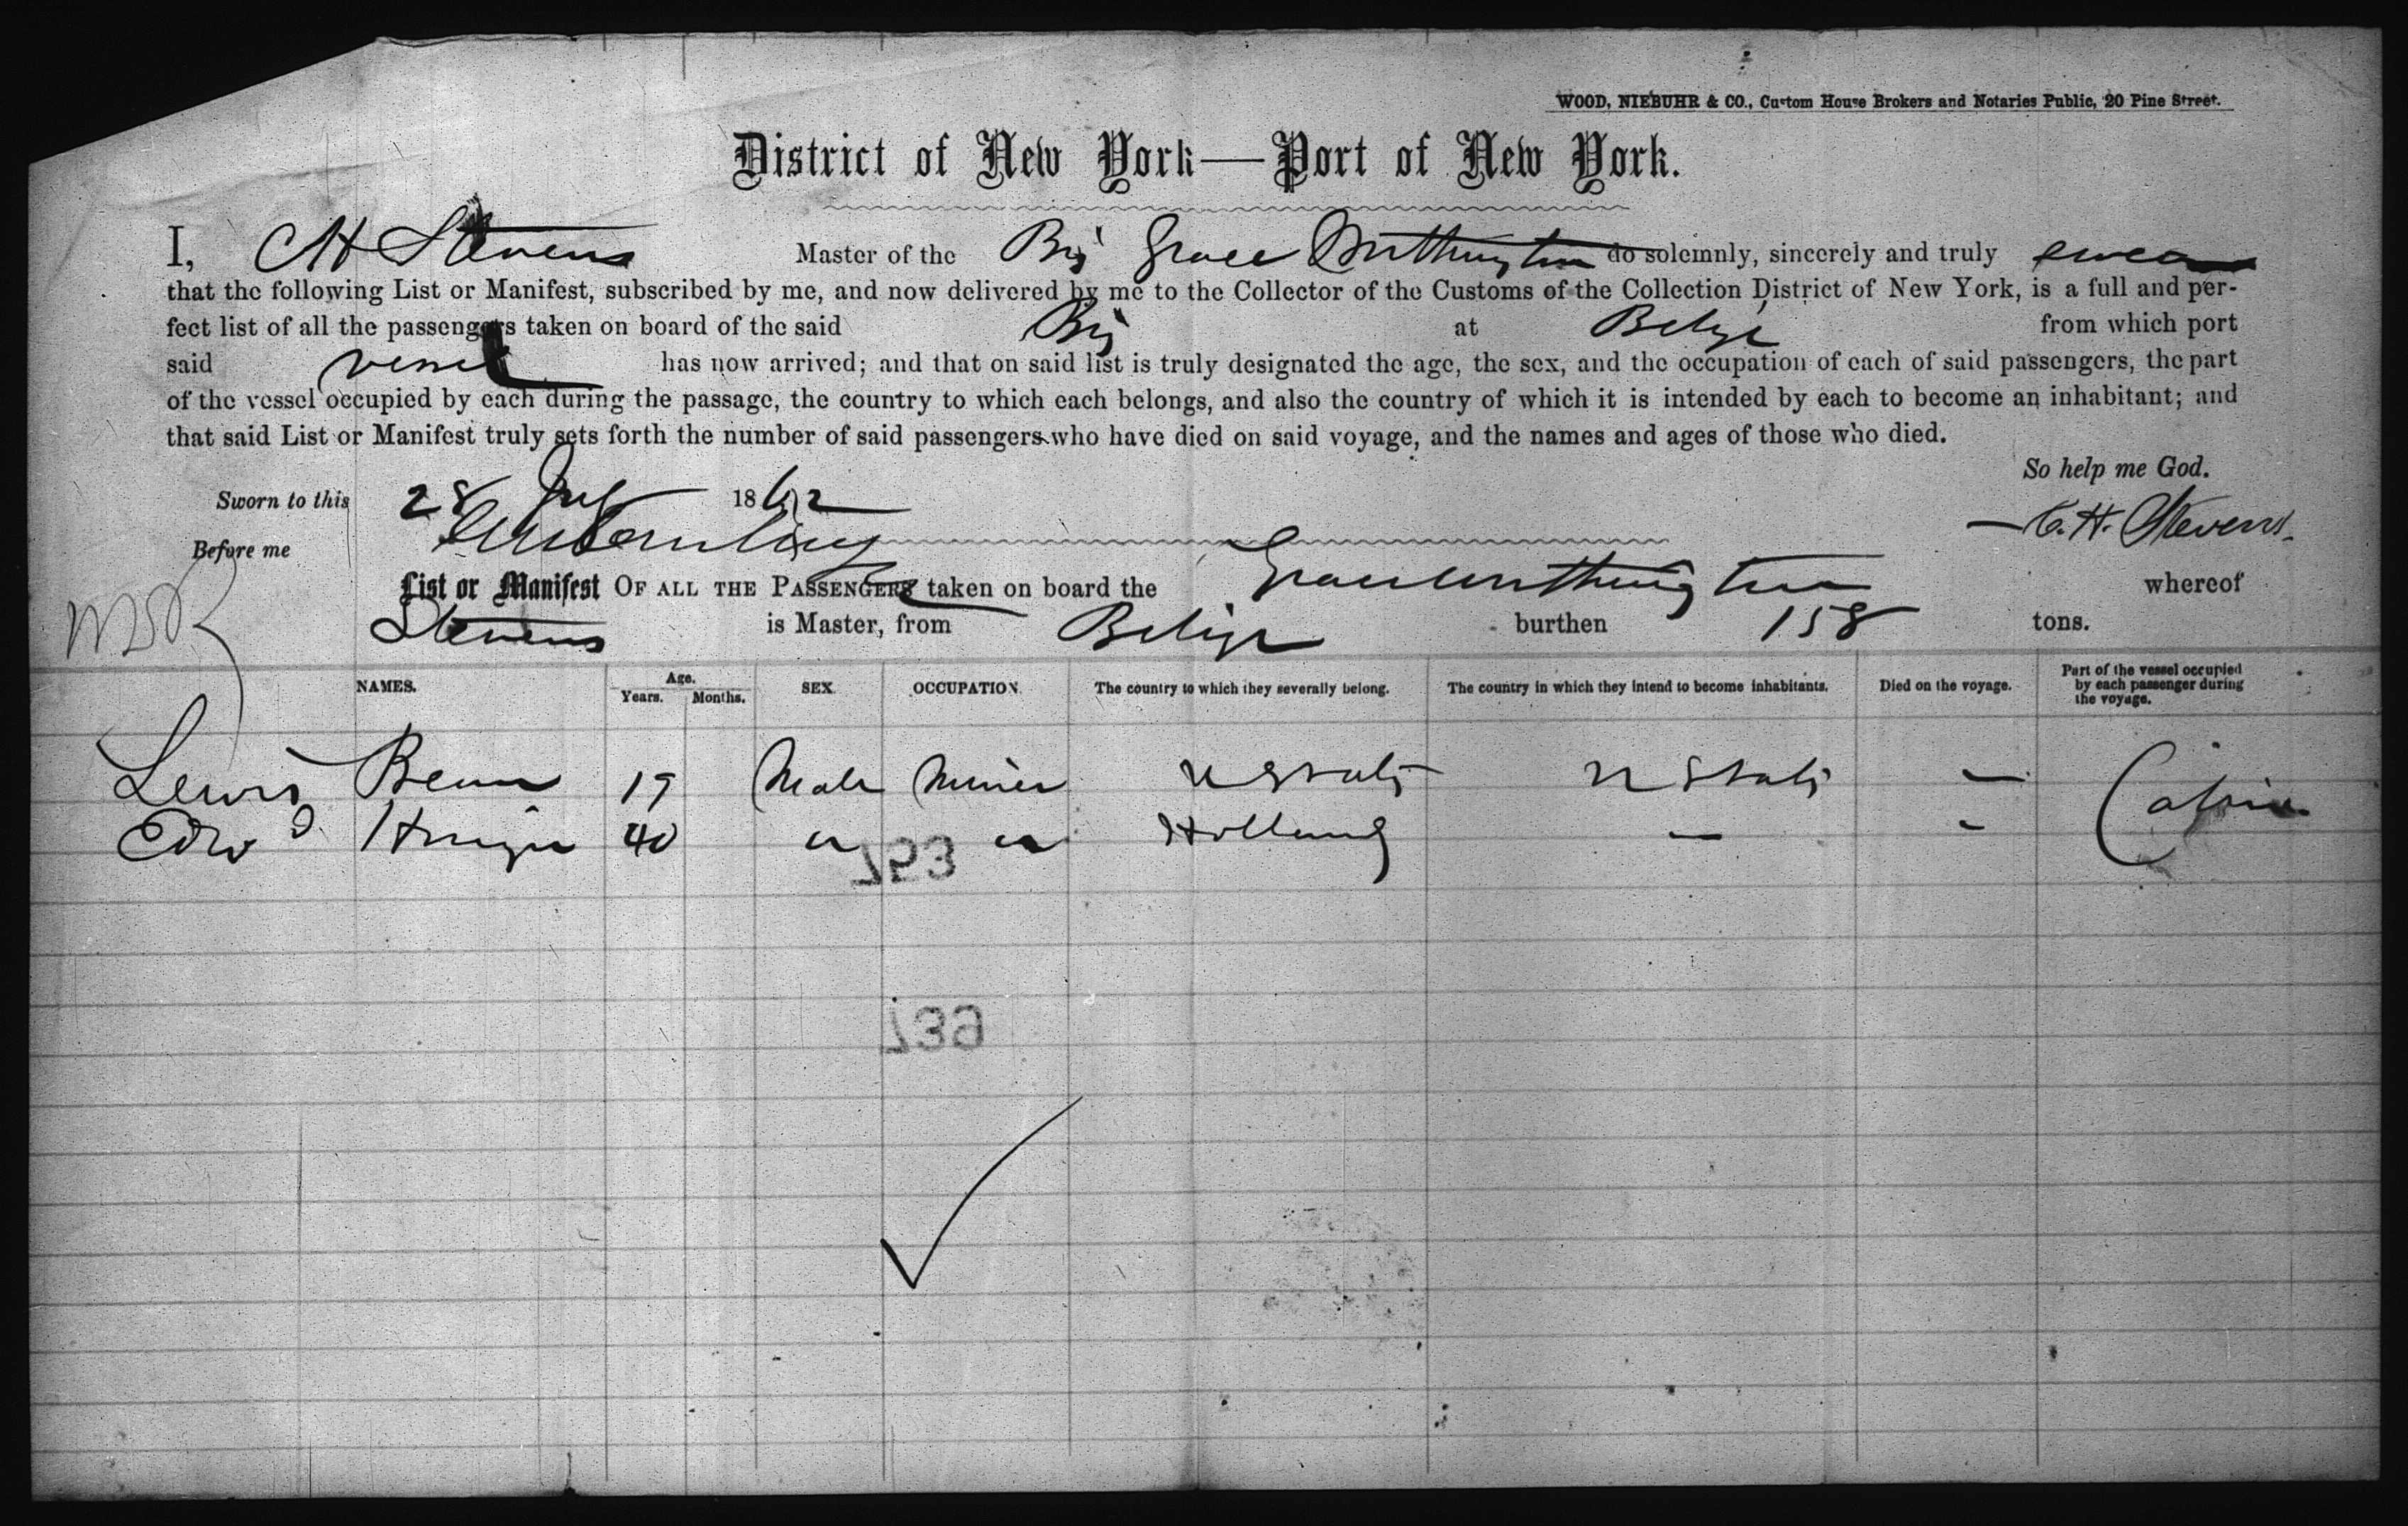 WOOD, NIEBUHR & CO., Custom House Brokers and Notaries Public, 20 Pine Street.
District of New York—Port of New York.
I, C H Stevens Master of the Brig Grace Worthington do solemnly, sincerely and truly swear
that the following List or Manifest, subscribed by me, and now delivered by me to the Collector of the Customs of the Collection District of New York, is a full and per-
fect list of all the passengers taken on board of the said Brig at Belize from which port
said vessel has now arrived; and that on said list is truly designated the age, the sex, and the occupation of each of said passengers, the part
of the vessel occupied by each during the passage, the country to which each belongs, and also the country of which it is intended by each to become an inhabitant; and
that said List or Manifest truly sets forth the number of said passengers who have died on said voyage, and the names and ages of those who died.
So help me God.
Sworn to this 28 July 1862
C. H. Stevens.
Before me
List or Manifest OF ALL THE PASSENGERS taken on board the Grace Worthington whereof
Stevens is Master, from Belize burthen 158 tons.
NAMES. Age. Years. Months. SEX. OCCUPATION. The country to which they severally belong. The country in which they intend to become inhabitants. Died on the voyage. Part of the vessel occupied by each passenger during the voyage.
Lewis 19 Male Miner U States U States — Cabin
Edwd 40 " " Holland — -
753
739